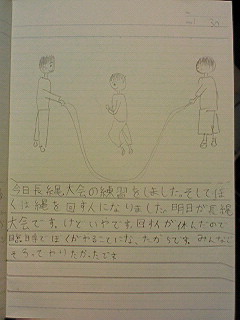 今日長縄大会の練習をしました。そしてぼ
くは縄を回す人になりました。明日が長縄
大会です。けどいやです。回す人が休んだので
でぼくがやることになったからです。みんなで
そろってやりたかったです